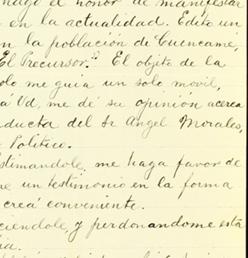 hago el honor de manifestar
en la actualidad. Edito un
en la población de Cuencamé,
"El Precursor." El objeto de la
solo me guia un solo movil,
a Vd, me dé su opinión acerca
ducta del Sr Angel Morales,
Politico.
stimandole, me haga favor de
me un testimonio en la forma
crea conveniente.
ciendole, y perdonandome esta
ia.